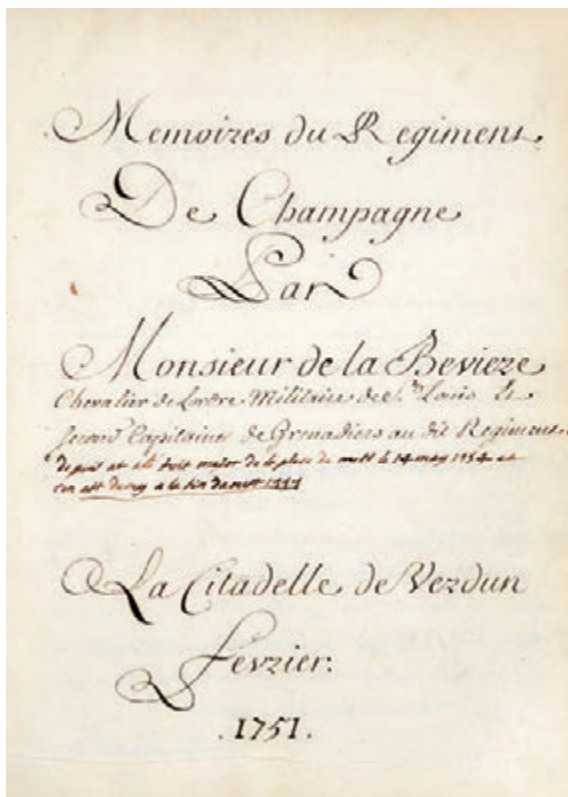 Memoires du Regiment
De Champagne
Par
Monsieur de la Bevieze
Chevalier de Lordre Militaire de St. Louis Et
second Capitaine de Grenadiers au dit Regiment
major de la place de le 14 may 1754 et
a la fin
La Citadelle de Verdun
Fevrier.
.1751.